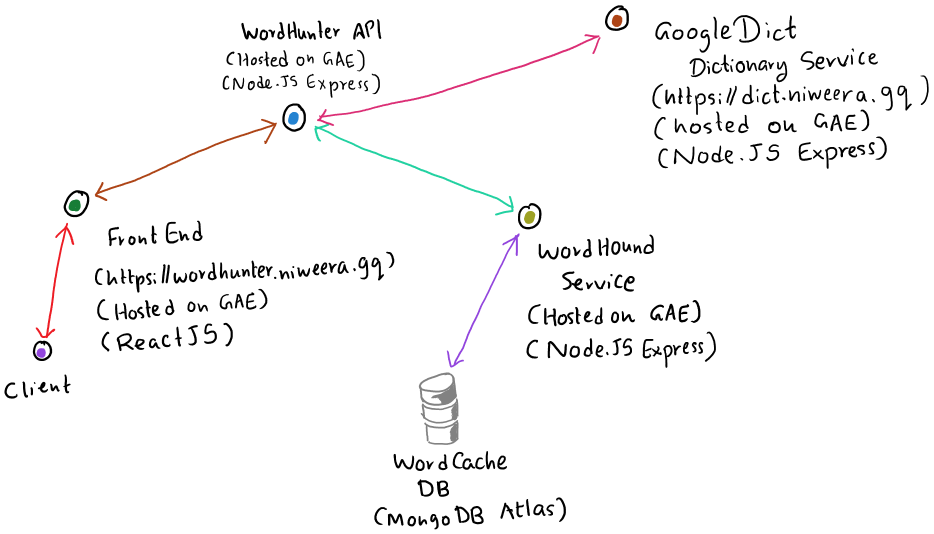 WordHunter API
(Hosted on GAE)
(Node.JS Express)
GoogleDict
Dictionary Service
(https://dict.niweera.gq)
(hosted on GAE)
(Node.JS Express)
FrontEnd
(https://wordhunter.niweera.gq)
(Hosted on GAE)
(ReactJS)
Client
WordHound
Service
(Hosted on GAE)
(Node.JS Express)
WordCache
DB
(MongoDB Atlas)